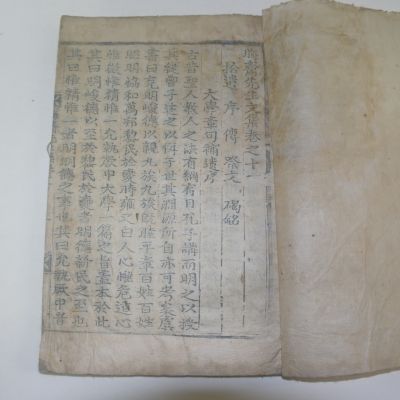 晦齋先生文集卷之十一
拾遺 序 傳 祭文 碣銘
大學章句補遺序
古昔聖人敎人之法有綱有目孔子講而明之以授
於曾子以傳于世其淵源所自亦可考矣虞
書曰克明峻德以親九族九族旣睦平章百姓百姓
昭明協和萬邦黎民於變時雍又曰人心惟危道心
惟微惟精惟一允執厥中大學一篇之旨盖本於此
其曰明峻德以至於黎民於變者明德新民之至也
其曰惟精惟一者明明德之事也其曰允執厥中者